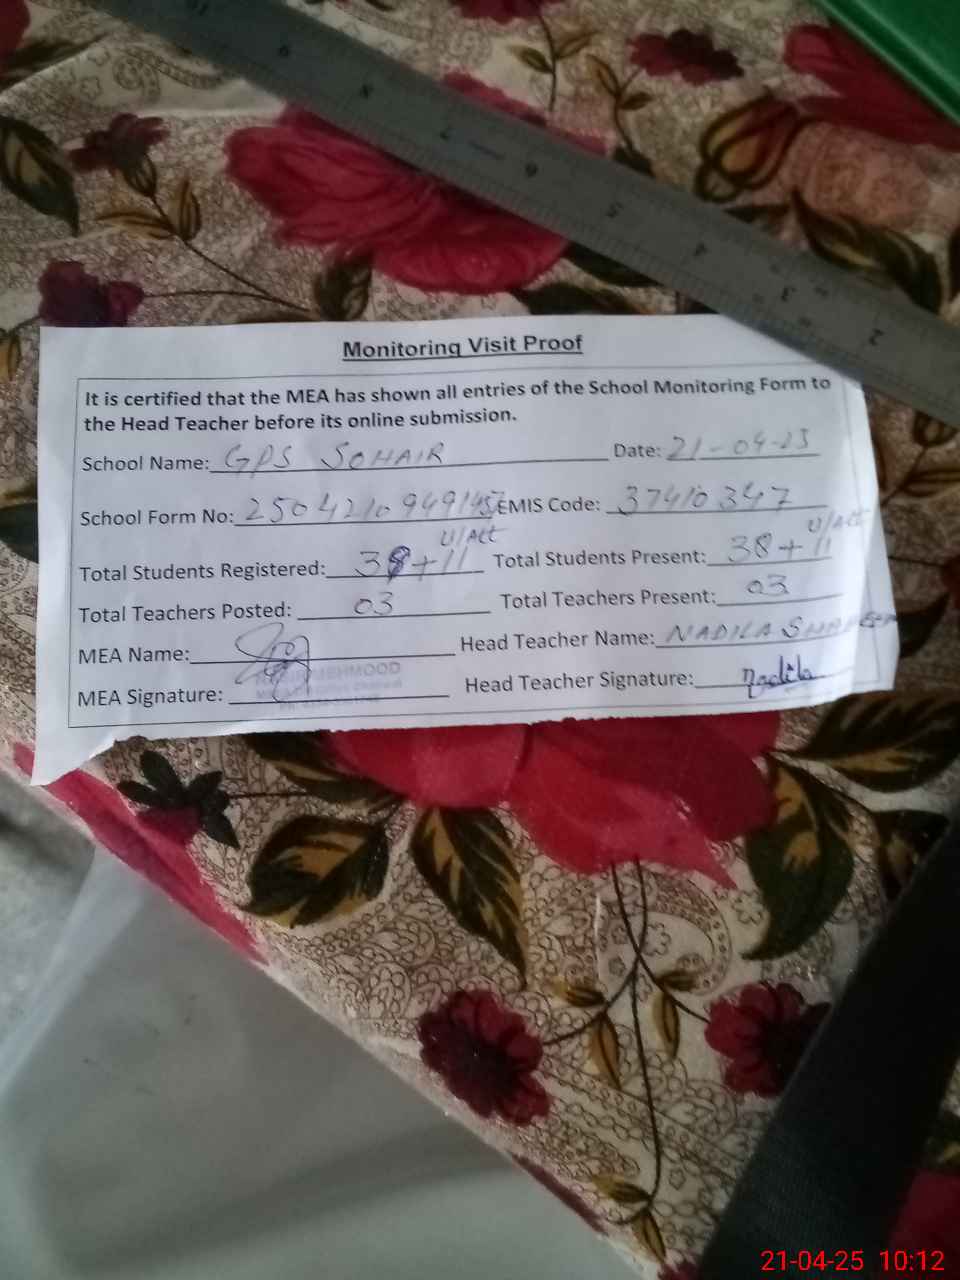 10 9 8 7 6 5 4 3 2
Monitoring Visit Proof
It is certified that the MEA has shown all entries of the School Monitoring Form to
the Head Teacher before its online submission.
School Name: GPS SOHAIR Date: 21-04-25
School Form No: EMIS Code: 37410347
U/Att U/Att
Total Students Registered: 38+11 Total Students Present: 38+11
Total Teachers Posted: 03 Total Teachers Present: 03
MEA Name: Head Teacher Name: NADILA SHAHEEN
MEHMOOD
MEA Signature: Head Teacher Signature: Nadila
21-04-25 10:12